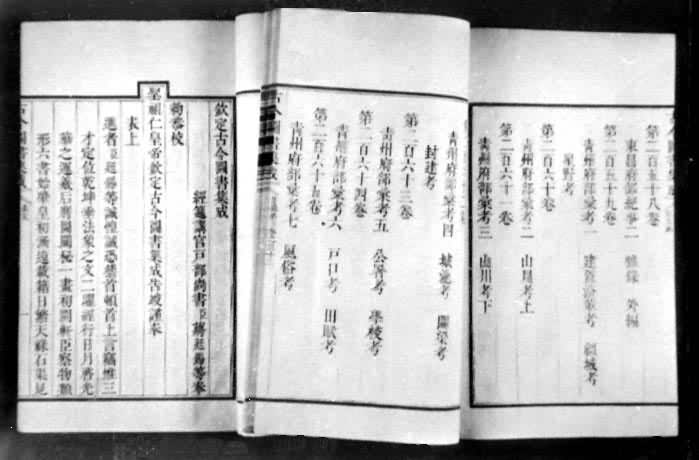 第二百五十八卷
東昌府部紀事二 雜錄 外編
第二百五十九卷
青州府部彙考一 建置沿革考 疆域考
星野考
第二百六十卷
青州府部彙考二 山川考上
第二百六十一卷
青州府部彙考三 山川考下
青州府部彙考四 城池考 關梁考
封建考
第二百六十三卷
青州府部彙考五 公署考 學校考
第二百六十四卷
青州府部彙考六 戶口考 田賦考
第二百六十五卷
青州府部彙考七 風俗考
古今圖書集成
欽定古今圖書集成
經筵講官戶部尚書臣蔣廷錫等奉
敕恭校
聖祖仁皇帝欽定古今圖書集成告竣謹奉
表上
進者臣廷錫等誠惶誠恐稽首頓首上言竊惟三
才定位乾坤垂法象之文二曜經行日月啓光
華之運 后 圖 秘一畫初開軒臣察物類
形六書始肇皇初漸遠載籍日繁天祿石渠見
古今圖書集成